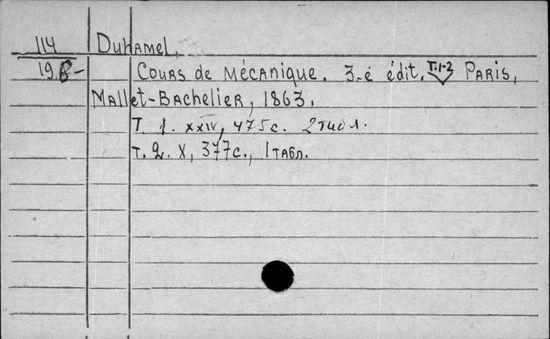 114 Duhamel.
19 B-
Cours de Mécanique. 3-é édit. T.1-2 Paris,
Mallet-Bachelier, 1863.
T. 1. XXIV, 475 с. 2 табл.
Т. 2. X, 377 с., 1 табл.